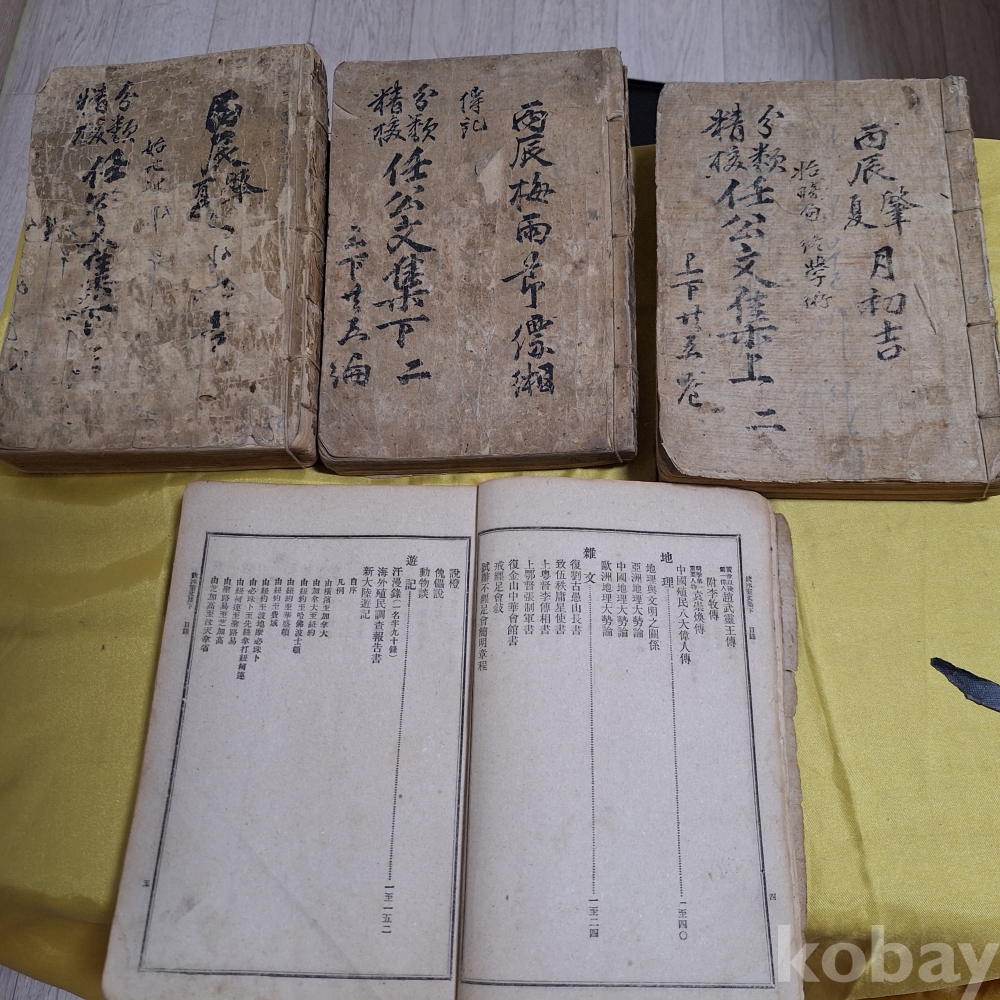 精校
分類
任公文集
丙辰
肇
丙辰梅雨節縹緗
傳記
分類
精校
任公文集下二
上下共五編
丙辰
肇
夏
月初吉
終學術
分類
精校
任公文集上二
上下共五卷
飲冰室文集下 目錄
趙武靈王傳
附李牧傳
袁崇煥傳
中國殖民八大偉人傳
地理 一至四〇
地理與文明之關係
亞洲地理大勢論
中國地理大勢論
歐洲地理大勢論
雜文 一至二四
復劉古愚山長書
致伍秩庸星使書
上粵督李傅相書
上鄂督張制軍書
復金山中華會館書
戒纏足會敍
試辦不纏足會簡明章程
四
說橙
傀儡說
動物談
遊記 一至一五二
汗漫錄(一名半九十錄)
海外殖民調查報告書
新大陸遊記
自序
凡例
由橫濱至加拿大
由加拿大至紐約
由紐約至哈佛波士頓
由紐約至華盛頓
由紐約至費城
由紐約至波地摩必珠卜
由必珠卜至先絲拿打紐柯連
由紐柯連至聖路易
由聖路易至芝加高
由芝加高至汶天拿省
飲冰室文集下 目錄
五
kobay